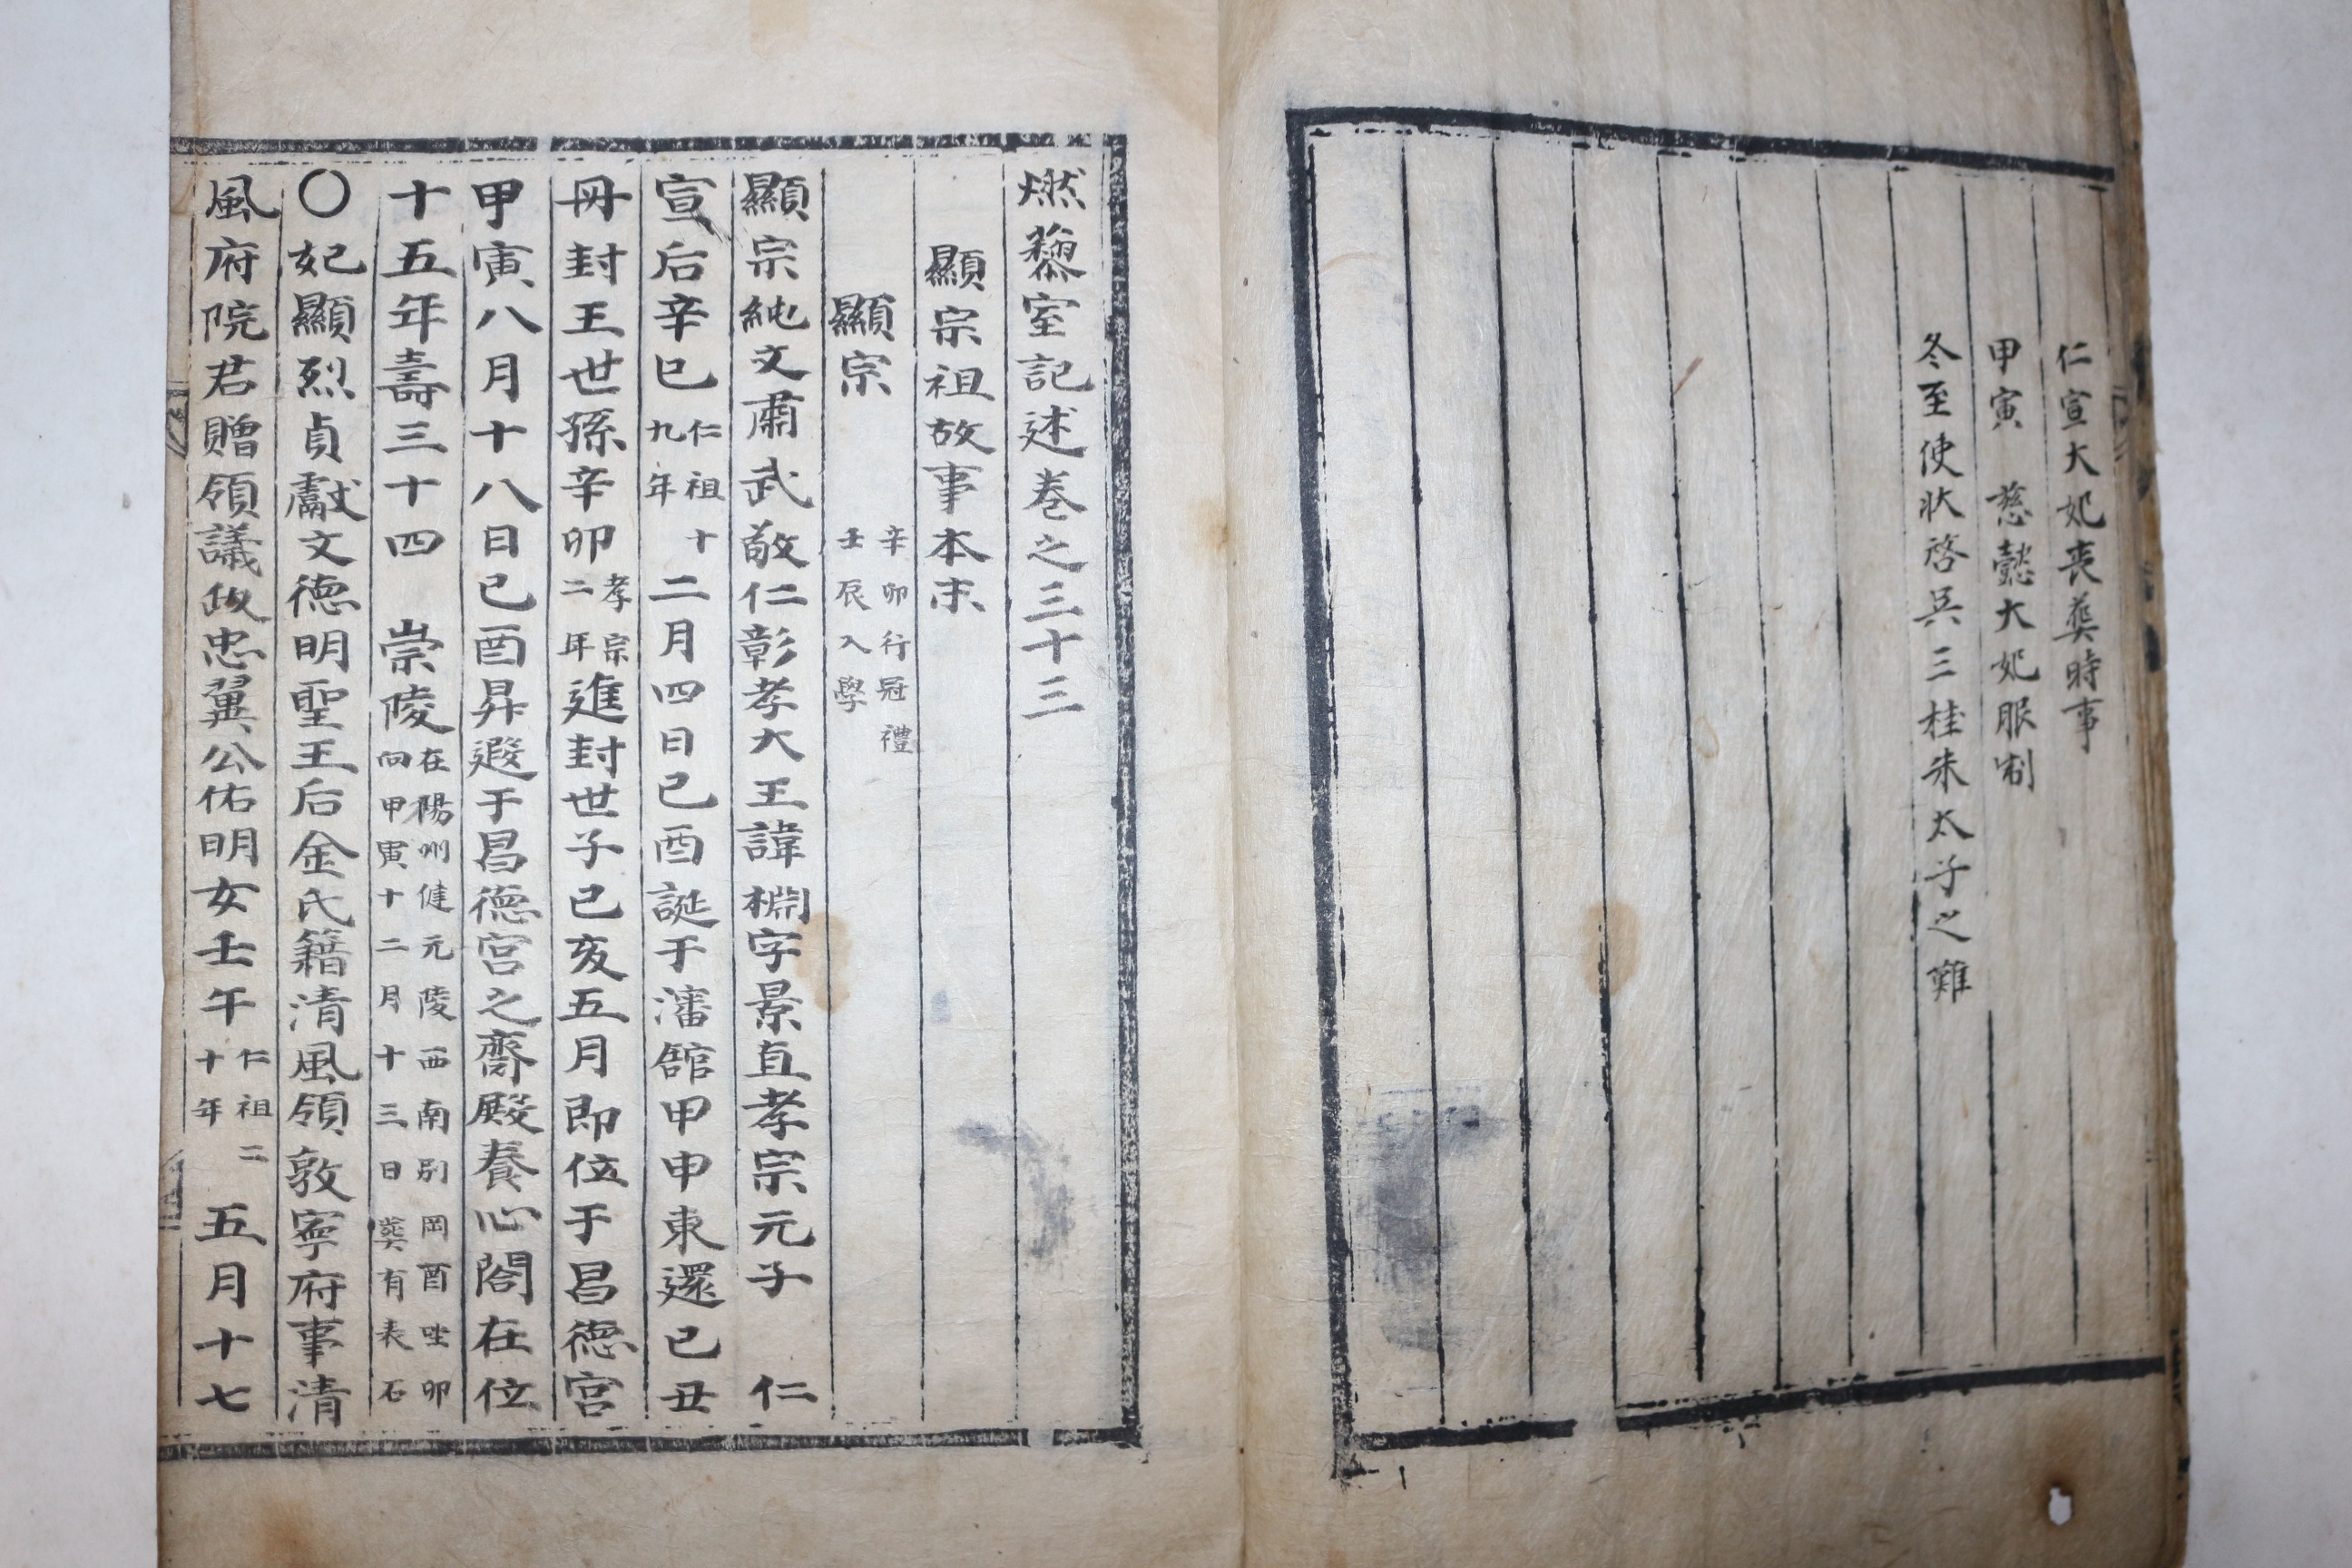 仁宣大妃喪葬時事
甲寅 慈懿大妃服制
冬至使狀啓吳三桂朱太子之難
燃藜室記述卷之三十三
顯宗祖故事本末
顯宗 辛卯行冠禮 壬辰入學
顯宗純文肅武敬仁彰孝大王諱棩字景直孝宗元子 仁
宣后辛巳 仁祖十九年 二月四日己酉誕于瀋舘甲申東還己丑
冊封王世孫辛卯 孝宗二年 進封世子己亥五月即位于昌德宮
甲寅八月十八日己酉昇遐于昌德宮之齋殿養心閤在位
十五年壽三十四 崇陵 在楊州健元陵西南別岡酉坐卯 向甲寅十二月十三日葬有表石
〇妃顯烈貞獻文德明聖王后金氏籍清風領敦寧府事清
風府院君贈領議政忠翼公佑明女壬午 仁祖二十年 五月十七